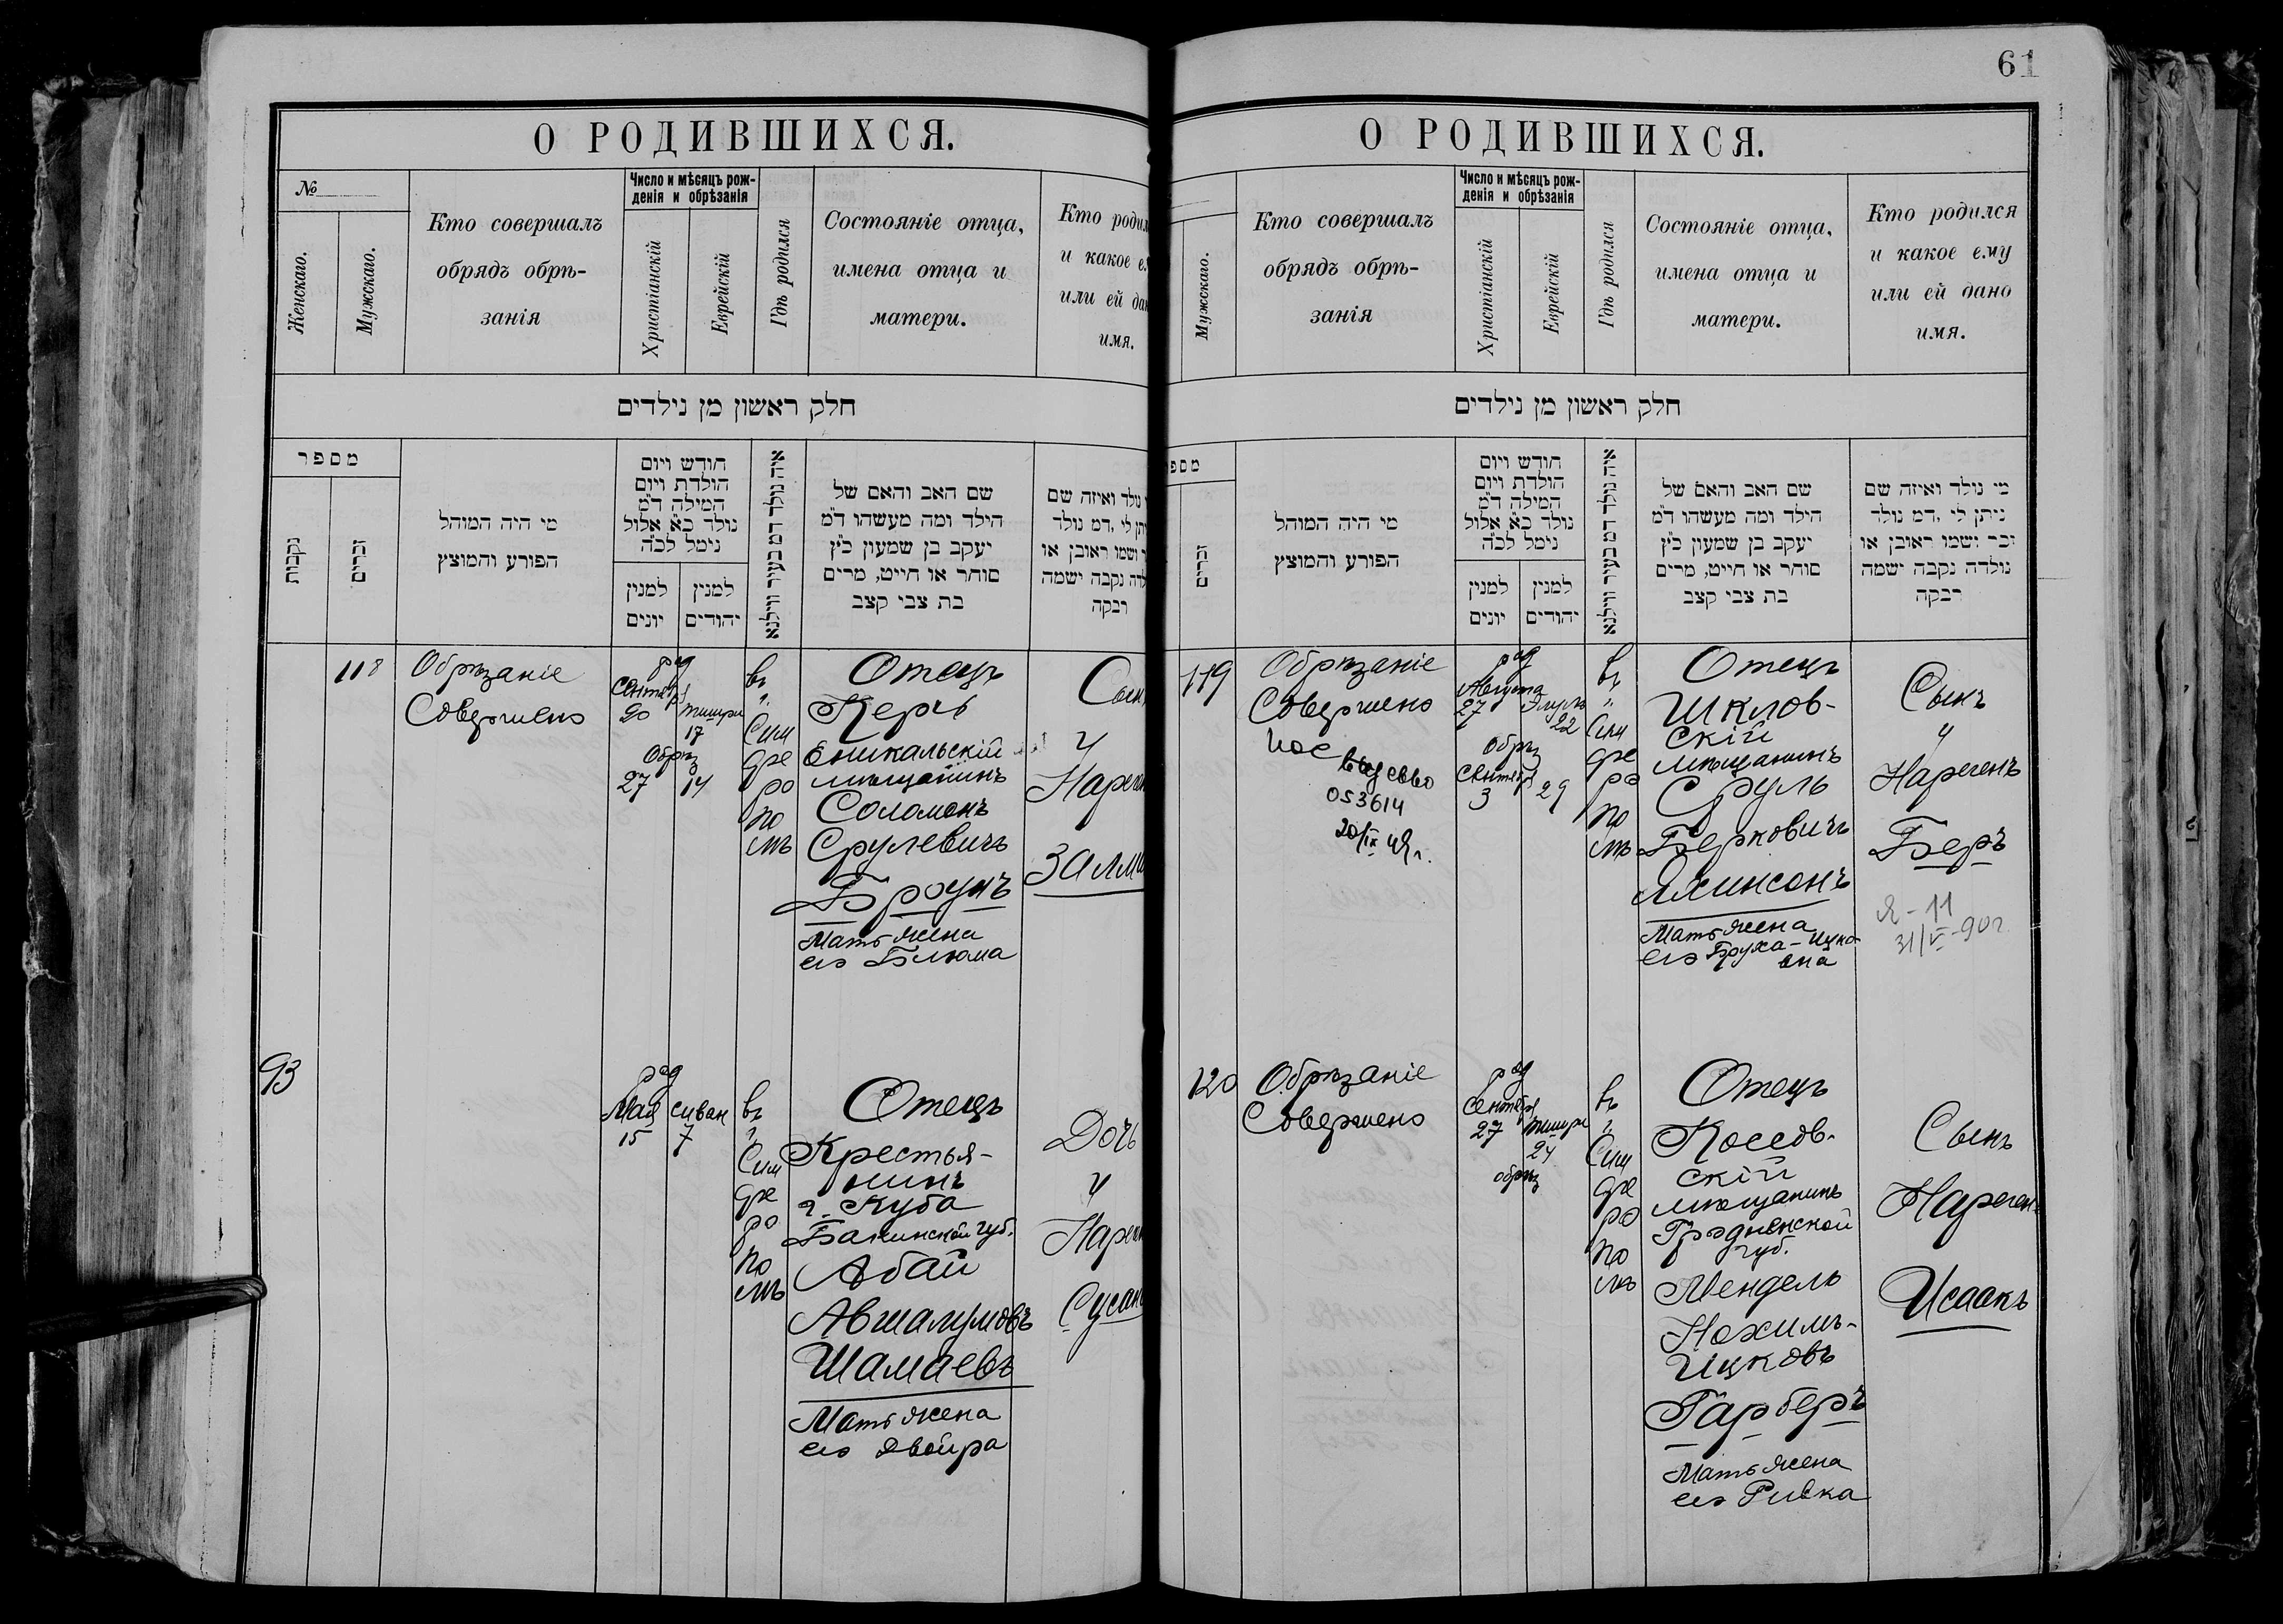 61
О РОДИВШИХСЯ.
№
Женскаго.
Мужскаго.
Кто совершалъ
обрядъ обрѣ-
занія
Число и мѣсяцъ рож-
денія и обрѣзанія
Христіанскій
Еврейскій
Гдѣ родился
Состояніе отца,
имена отца и
матери.
Кто родил
и какое е
или ей дан
имя.
חלק ראשון מן נילדים
מספר
נקבות
זכרים
מי היה המוהל
הפורע והמוצץ
חודש ויום
הולדת ויום
המילה ד״מ
נולד כ״א אלול
נימל לכ״ה
למנין
יונים
למנין
יהודים
איה נולד דמ בעיר ווילנא
שם האב והאם של
הילד ומה מעשהו ד״מ
יעקב בן שמעון כ״ץ
סוחר או חייט, מרים
בת צבי קצב
נולד ואיזה שם
יתן לי ,דמ נולד
ושמו ראובן או
לדה נקבה ישמה
רבקה
118
Обрѣзаніе
Совершено
род
Сентяб
20
Тишри
17
Обрѣз
27
14
въ
г.
Сим
фе
ро
по
лѣ
Отецъ
Керчь
Еникальскій
мѣщанинъ
Соломонъ
Срулевичъ
Броунъ
Мать жена
его Блюма
Сын
и
Нарече
Залма
93
род
Мая
15
сиван
7
въ
г.
Сим
фе
ро
по
лѣ
Отецъ
Крестья-
нинъ
г. Куба
Бакинской губ.
Абай
Авшалумовъ
Шамаевъ
Мать жена
его Двойра
Дочь
и
Нарече
Сусан
О РОДИВШИХСЯ.
Мужскаго.
Кто совершалъ
обрядъ обрѣ-
занія
Число и мѣсяцъ рож-
денія и обрѣзанія
Христіанскій
Еврейскій
Гдѣ родился
Состояніе отца,
имена отца и
матери.
Кто родился
и какое ему
или ей дано
имя.
חלק ראשון מן נילדים
מספ
זכרים
מי היה המוהל
הפורע והמוצץ
חודש ויום
הולדת ויום
המילה ד״מ
נולד כ״א אלול
נימל לכ״ה
למנין
יונים
למנין
יהודים
איה נולד דמ בעיר ווילנא
שם האב והאם של
הילד ומה מעשהו ד״מ
יעקב בן שמעון כ״ץ
סוחר או חייט, מרים
בת צבי קצב
מי נולד ואיזה שם
ניתן לי ,דמ נולד
זכר ושמו ראובן או
נולדה נקבה ישמה
רבקה
119
Обрѣзаніе
Совершено
053614
20/IX 49г.
род
Августа
27
Элулъ
22
Обрѣз
Сентября
3
29
въ
г.
Сим
фе
ро
по
лѣ
Отецъ
Шклов-
скій
мѣщанинъ
Сруль
Берковичъ
Яхинсонъ
Мать жена
его Бруха-
Сынъ
и
Нареченъ
Беръ
Я-11
31/V-90г
120
Обрѣзаніе
Совершено
род
Сентября
27
Тишри
24
обрѣз
въ
г.
Сим
фе
ро
по
лѣ
Отецъ
Коссов-
скій
мѣщанинъ
Гродненской
губ.
Мендель
Нохимъ-
Ицковъ
Гарберъ
Мать жена
его Ривка
Сынъ
Наречен
Исаакъ